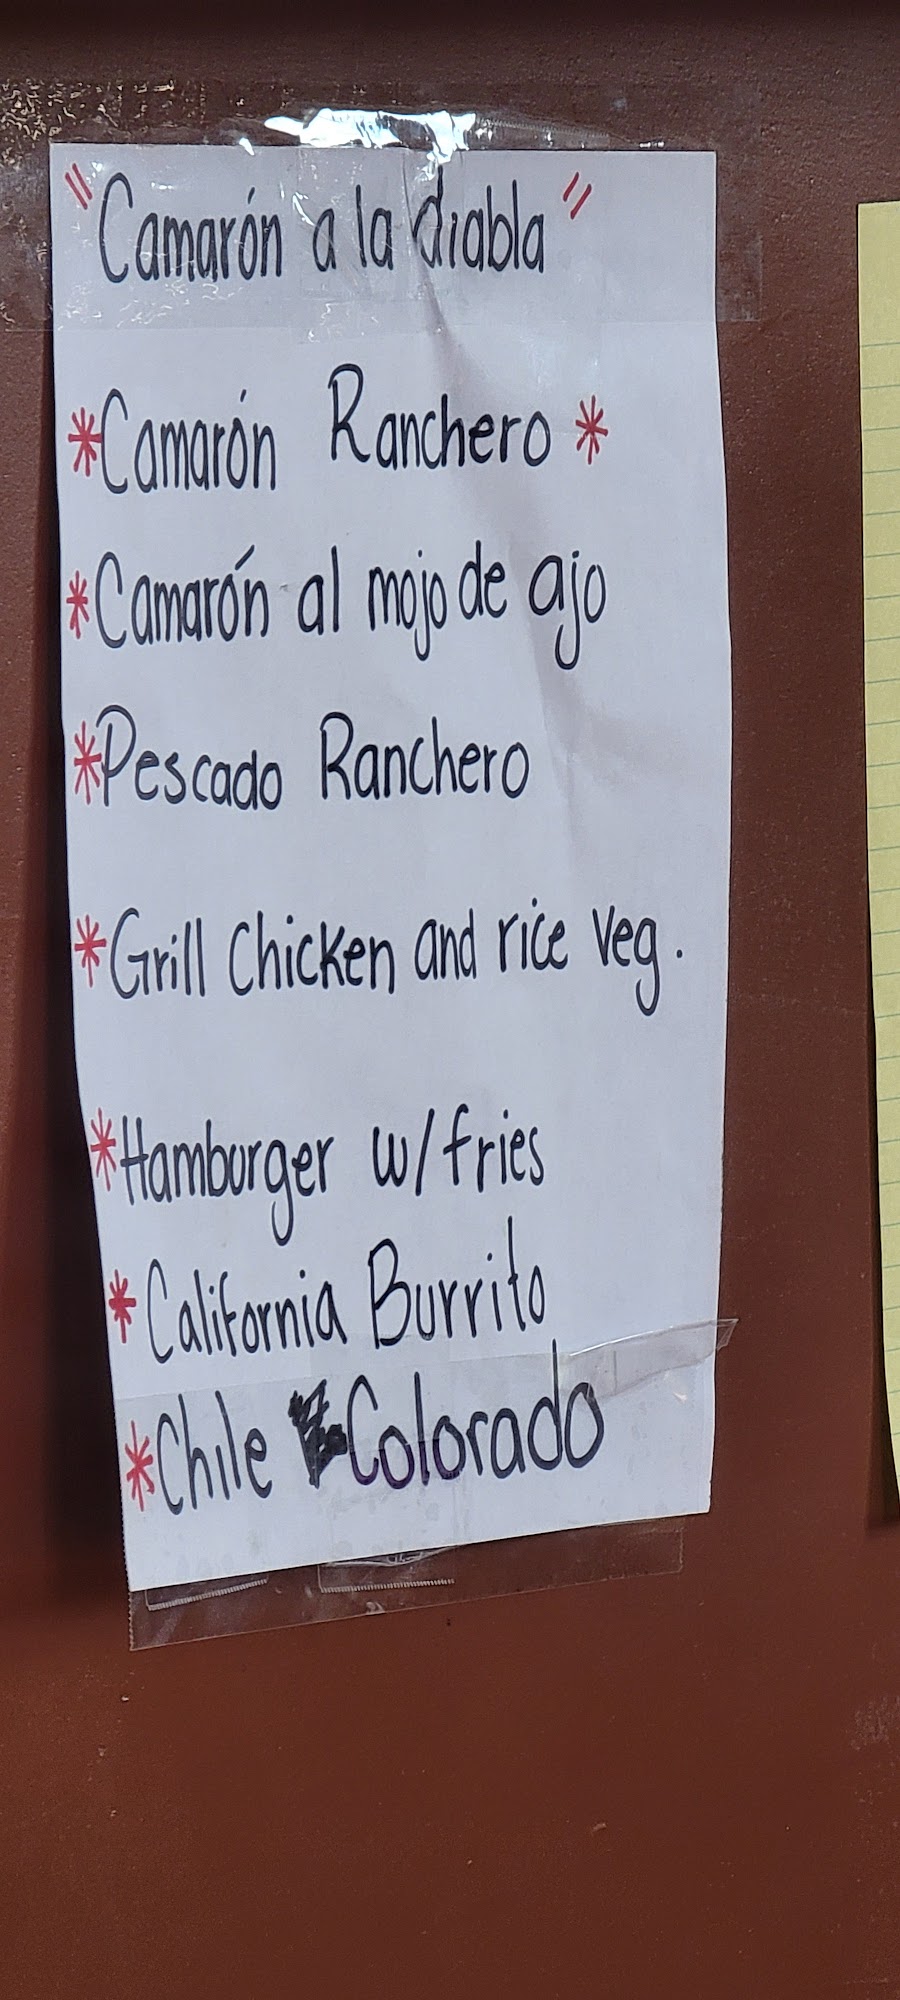 "Camarón a la diabla"
*Camarón Ranchero*
*Camarón al mojo de ajo
*Pescado Ranchero
*Grill Chicken and rice veg.
*Hamburger w/fries
*California Burrito
*Chile Colorado